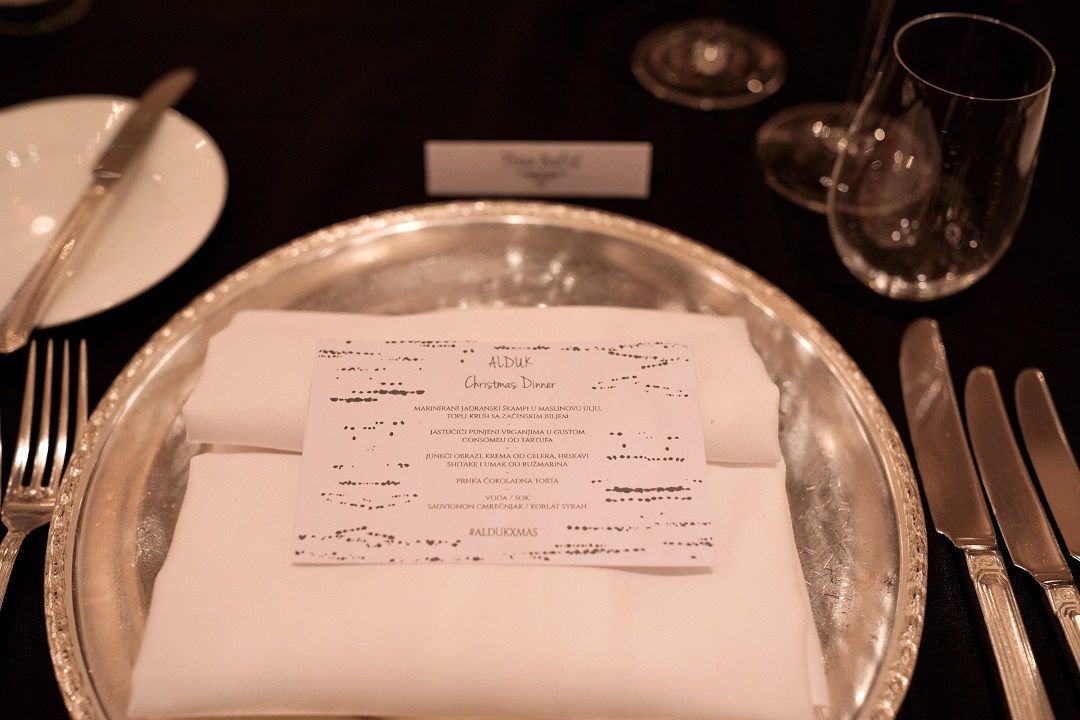 ALDUK
Christmas Dinner
MARINIRANI JADRANSKI ŠKAMPI U MASLINOVU ULJU,
TOPLI KRUH SA ZAČINSKIM BILJEM
JASTUČIĆI PUNJENI VRGANJIMA U GUSTOM
CONSOMEU OD TARTUFA
JUNEĆI OBRAZI, KREMA OD CELERA, HRSKAVI
SHITAKE I UMAK OD RUŽMARINA
PRHKA ČOKOLADNA TORTA
VODA / SOK
SAUVIGNON OMREČNJAK / KORLAT SYRAH
#ALDUKXMAS